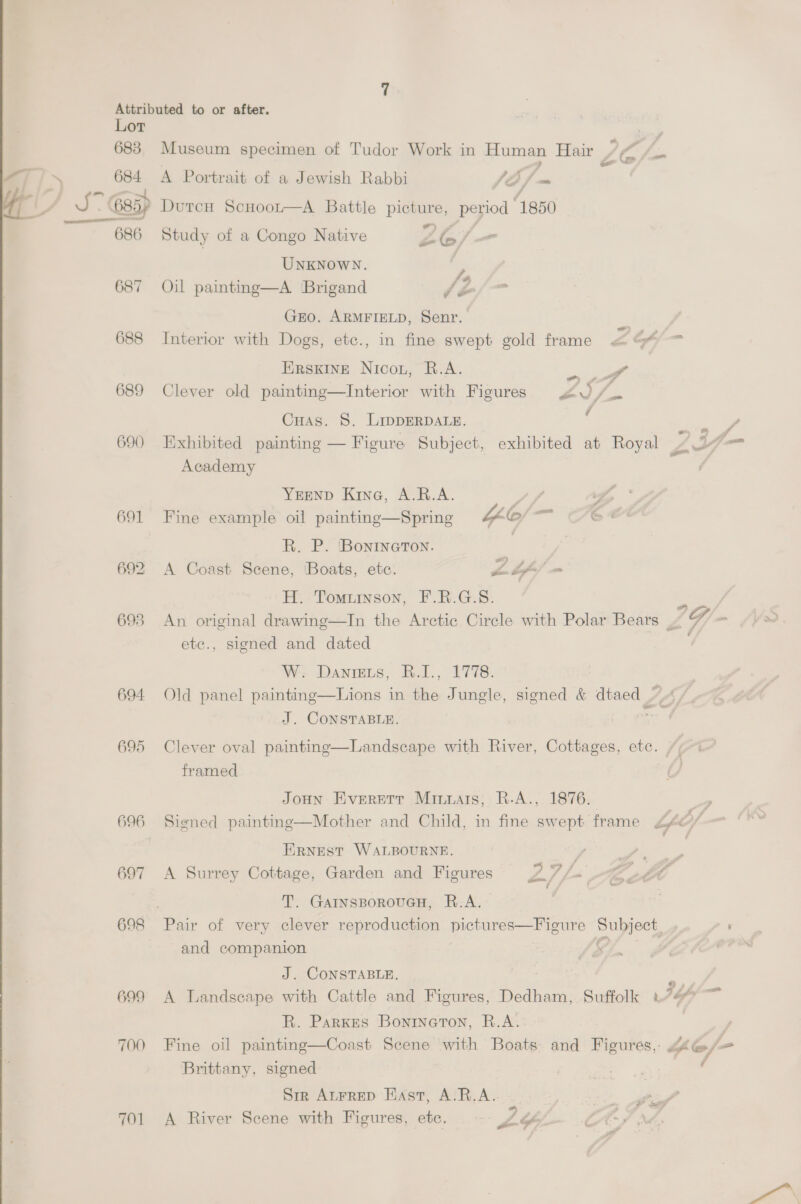 7
Attributed to or after.
Lot
683 Museum specimen of Tudor Work in Human Hair 26/-
684 A Portrait of a Jewish Rabbi
685 Dutch School—A Battle picture, period 1850
686 Study of a Congo Native 26/-
Unknown.
687 Oil painting—A Brigand 12/-
Geo. Armfield, Senr.
688 Interior with Dogs, etc., in fine swept gold frame 24/-
Erskine Nicol, R.A.
689 Clever old painting—Interior with Figures 25/-
Chas. S. Lidderdale.
690 Exhibited painting — Figure Subject, exhibited at Royal
Academy
Yeend King, A.R.A.
691 Fine example oil painting—Spring 46/-
R. P. Bonington.
692 A Coast Scene, Boats, etc. 24/-
H. Tomlinson, F.R.G.S.
693 An original drawing—In the Arctic Circle with Polar Bears
etc., signed and dated
W. Daniels, R.I., 1778.
694 Old panel painting—Lions in the Jungle, signed & dtaed
J. Constable.
695 Clever oval painting—Landscape with River, Cottages, etc.
framed
John Everett Millais, R.A., 1876.
696 Signed painting—Mother and Child, in fine swept frame
Ernest Walbourne.
697 A Surrey Cottage, Garden and Figures 27/-
T. Gainsborough, R.A.
698 Pair of very clever reproduction pictures—Figure Subject
and companion
J. Constable.
699 A Landscape with Cattle and Figures, Dedham, Suffolk
R. Parkes Bonington, R.A.
700 Fine oil painting—Coast Scene with Boats and Figures, 46/-
Brittany, signed
Sir Alfred East, A.R.A.
701 A River Scene with Figures, etc. 24/-